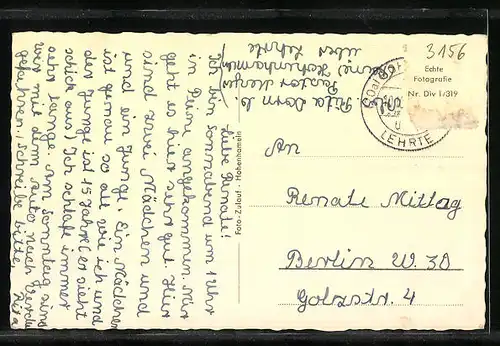 Liebe Renate!
Ich bin Sonnabend um 1 Uhr
in Peine angekommen. Mir
geht es hier sehr gut. Hier
sind zwei Mädchen und
und ein Junge. Ein Mädchen
ist genau so alt wie ich und
der Junge ist 15 Jahre (er sieht
schick aus) Ich schlafe immer
sehr lange. Am Sonntag sind
wir mit dem Auto nach
gefahren! Schreibe bitte,
Rita
Rita Dorn b.
Pastor
über Lehrte
Foto-Zulauf - Hohenhameln
3156
Echte
Fotografie
Nr. Div 1/319
LEHRTE
An
Renate Mittag
Berlin W. 30
Golzstr. 4